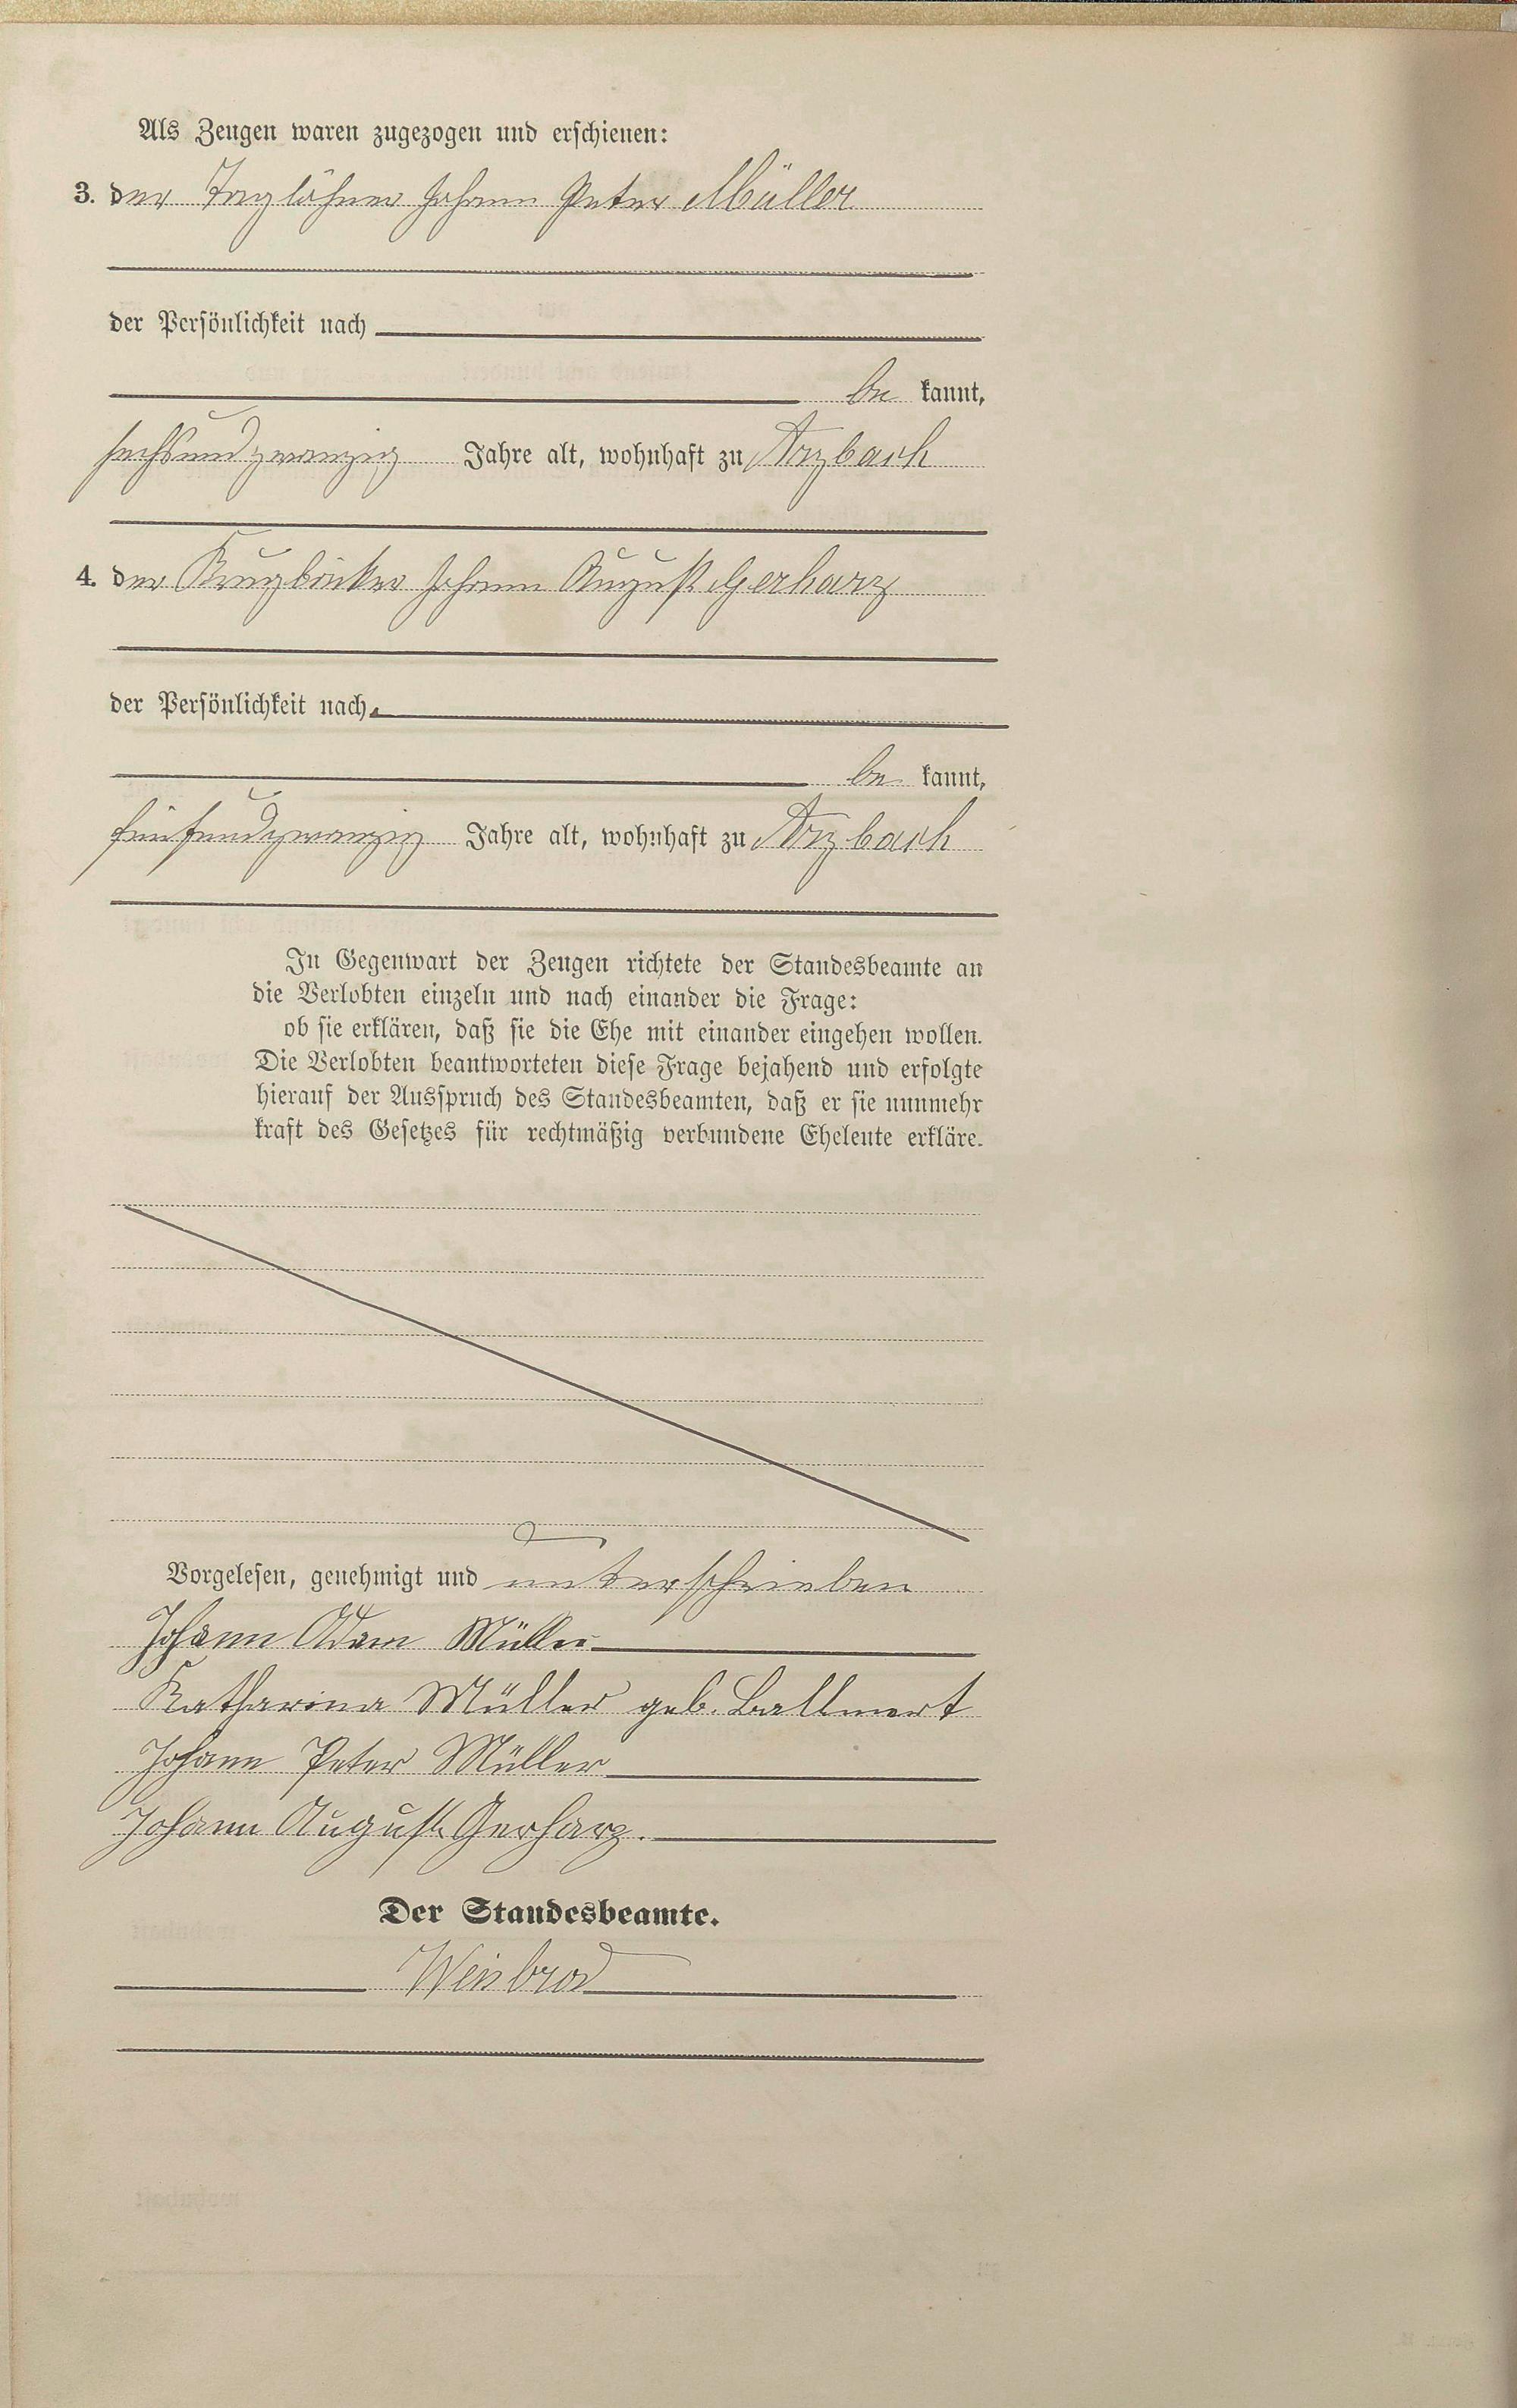 Als Zeugen waren zugezogen und erschienen:
3. der Taglöhner Johann Peter Müller
der Persönlichkeit nach
be kannt,
sechsundzwanzig Jahre alt, wohnhaft zu Arzbach
4. der Krugbäcker Johann August Gerharz
der Persönlichkeit nach
be kannt,
fünfundzwanzig Jahre alt, wohnhaft zu Arzbach
In Gegenwart der Zeugen richtete der Standesbeamte an
die Verlobten einzeln und nach einander die Frage:
ob sie erklären, daß sie die Ehe mit einander eingehen wollen.
Die Verlobten beantworteten diese Frage bejahend und erfolgte
hierauf der Ausspruch des Standesbeamten, daß er sie nunmehr
kraft des Gesetzes für rechtmäßig verbundene Eheleute erkläre.
Vorgelesen, genehmigt und unterschrieben
Johann Adam Müller
Katharina Müller geb. Ballmert
Johann Peter Müller
Johann August Gerharz.
Der Standesbeamte.
Weisbrod